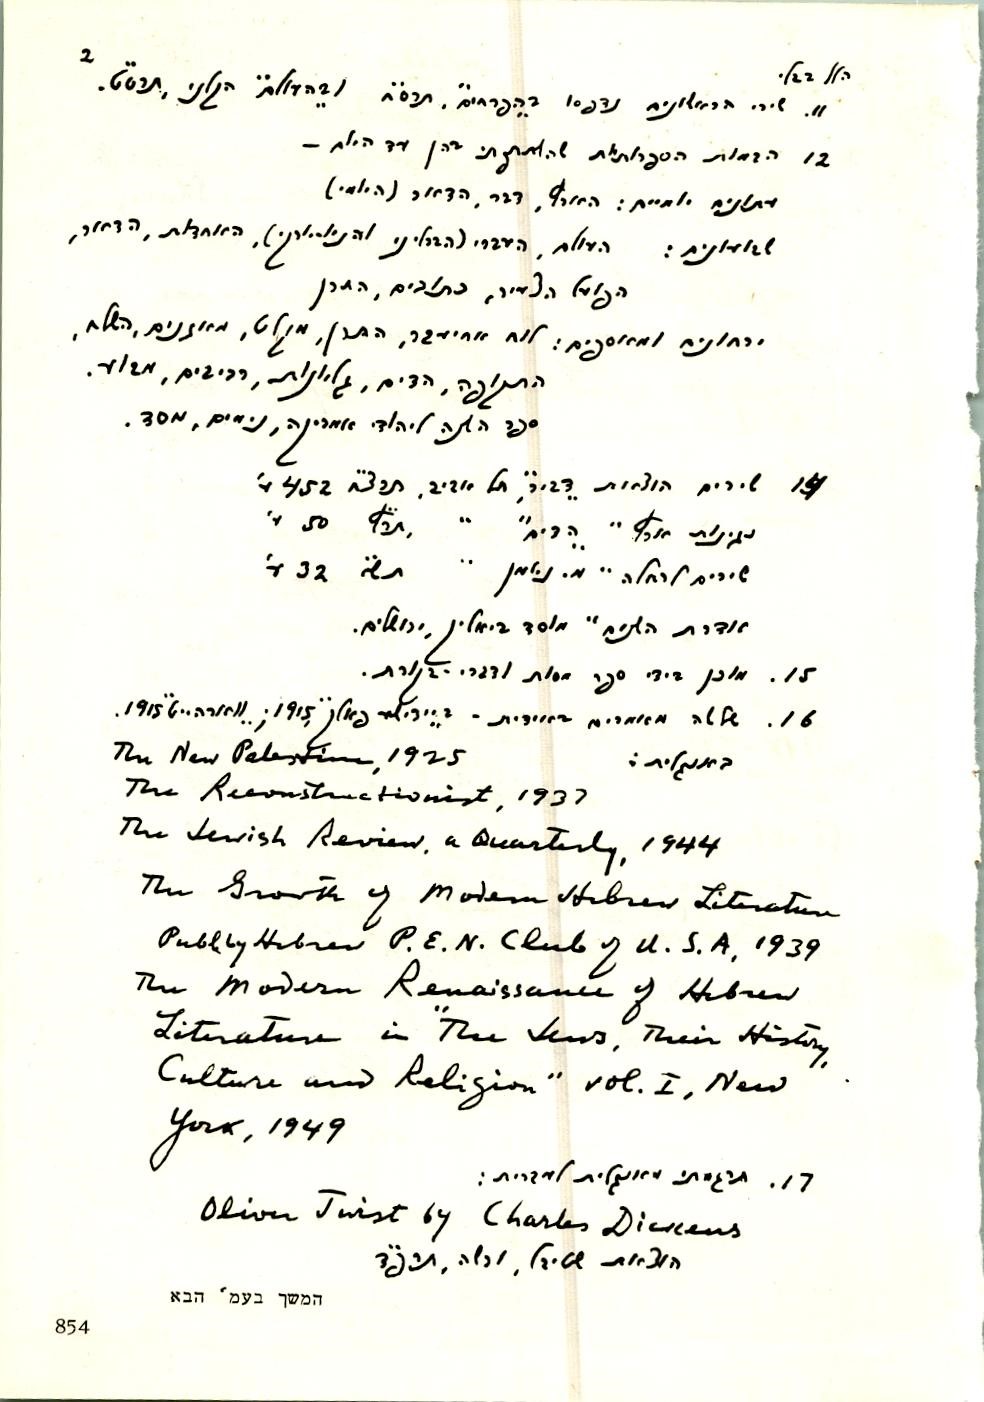 2
הלל בבלי
11. שירי הראשונים נדפסו ב"הפרחים", תרס"ח וב"העולם" הקלני, תרס"ט.
12 הבמות הספרותיות שהשתתפתי בהן עד היום —
עתונים יומיים: הארץ, דבר, הדואר (היומי)
שבועונים: העולם, העברי (הברליני והניו-יורקי), האחדות, הדואר,
הפועל הצעיר, כתובים, התרן
ירחונים ומאספים: לוח אחיעבר, התרן, מקלט, מאזנים, השלח,
התקופה, הדים, גליונות, רביבים, מבוע.
ספר השנה ליהודי אמריקה, נימים, מסד.
14 שירים הוצאת "דביר", תל אביב, תרצ"ח 452 ע'
נגינות ארץ " "הדים" " , תר"ץ 50 ע'
שירים לרחלה " מ. ניומן " תש"ח 32 ע'
אדרת השנים " מוסד ביאליק, ירושלים.
15. מוכן בידי ספר מסות ודברי-בקורת.
16. שלשה מאמרים באידית - ב"יידישע פאלק", 1915; "ווארהייט" 1915.
באנגלית: The New Palestine, 1925
The Reconstructionist, 1937
The Jewish Review, a Quarterly, 1944
The Growth of Modern Hebrew Literature
Publ. by Hebrew P.E.N. Club of U.S.A, 1939
The Modern Renaissance of Hebrew
Literature in "The Jews, Their History,
Culture and Religion" vol. I, New
York, 1949
17. תרגמתי מאנגלית לעברית:
Oliver Twist by Charles Dickens
הוצאת שטיבל, ורשה, תרפ"ד
המשך בעמ' הבא
854